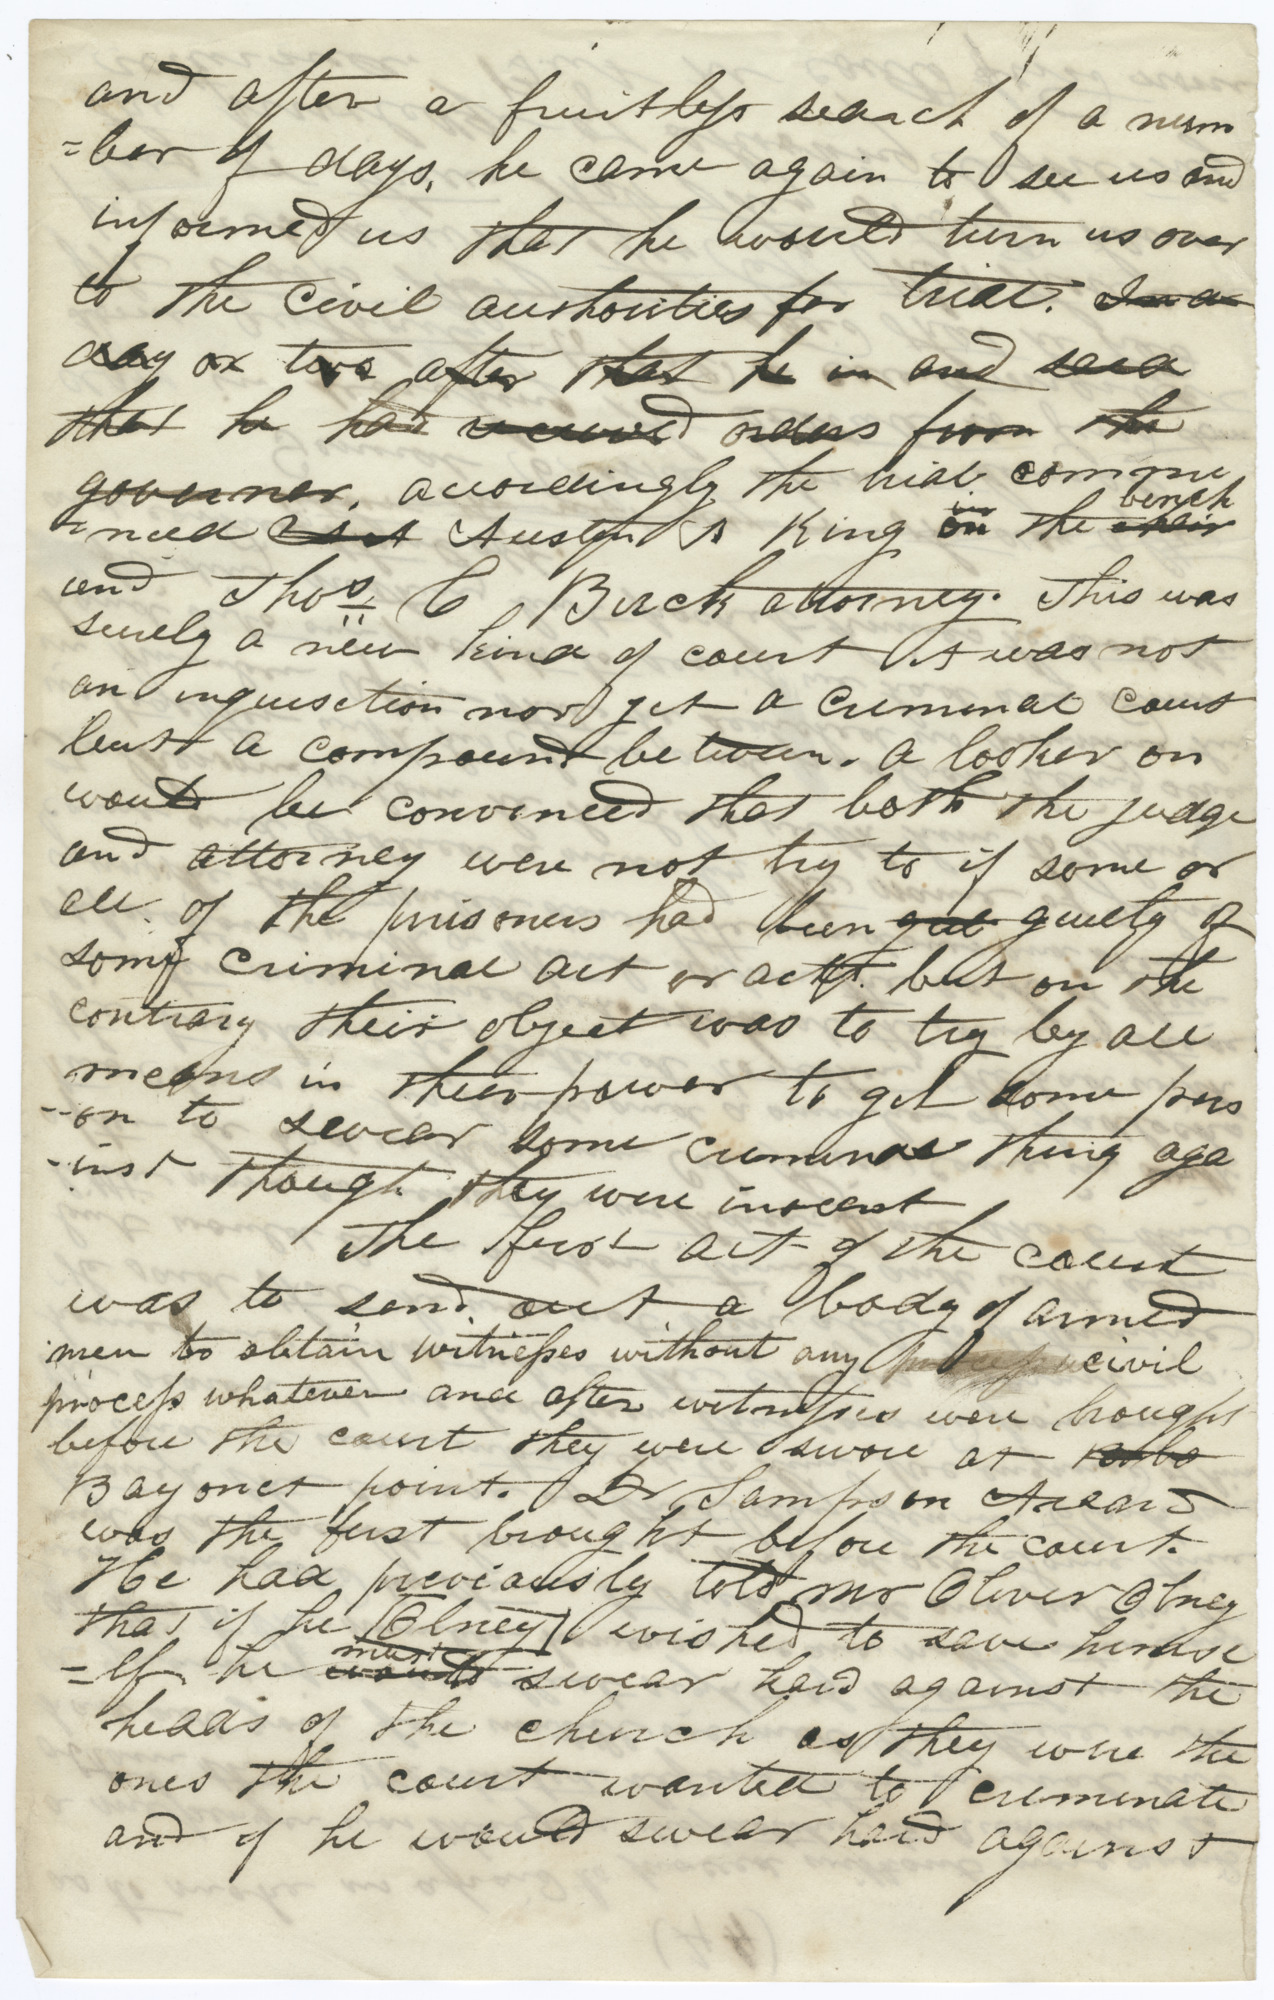 and after a fruitless search of a num
=ber of days, he came again to see us and
informed us that he would turn us over
to the civil authorities for trial. In a
day or two after that he in and said
that he had received orders from the
governor, accordingly the trial comme
=nced Austin A King in the bench
and Thos C Burch attorney. This was
surely a new kind of court it was not
an inquisition nor yet a criminal court
but a compound between. a looker on
would be convinced that both the judge
and attorney were not try to if some or
all of the prisoners had been guilty of
some criminal act or acts. but on the
contrary their object was to try by all
means in their power to get some pers
-on to swear some criminal thing aga
-inst though they were inocent
The first act of the court
was to send out a body of armed
men to obtain witnesses without any civil
process whatever and after witnesses were brought
before the court they were swore at
Bayonet point. Dr Sampson Avard
was the first brought before the court.
He had previously told Mr Oliver Olney
that if he [Olney] wished to save himse
=lf he must swear hard against the
heads of the church as they were the
ones the court wanted to criminate
and if he would swear hard against